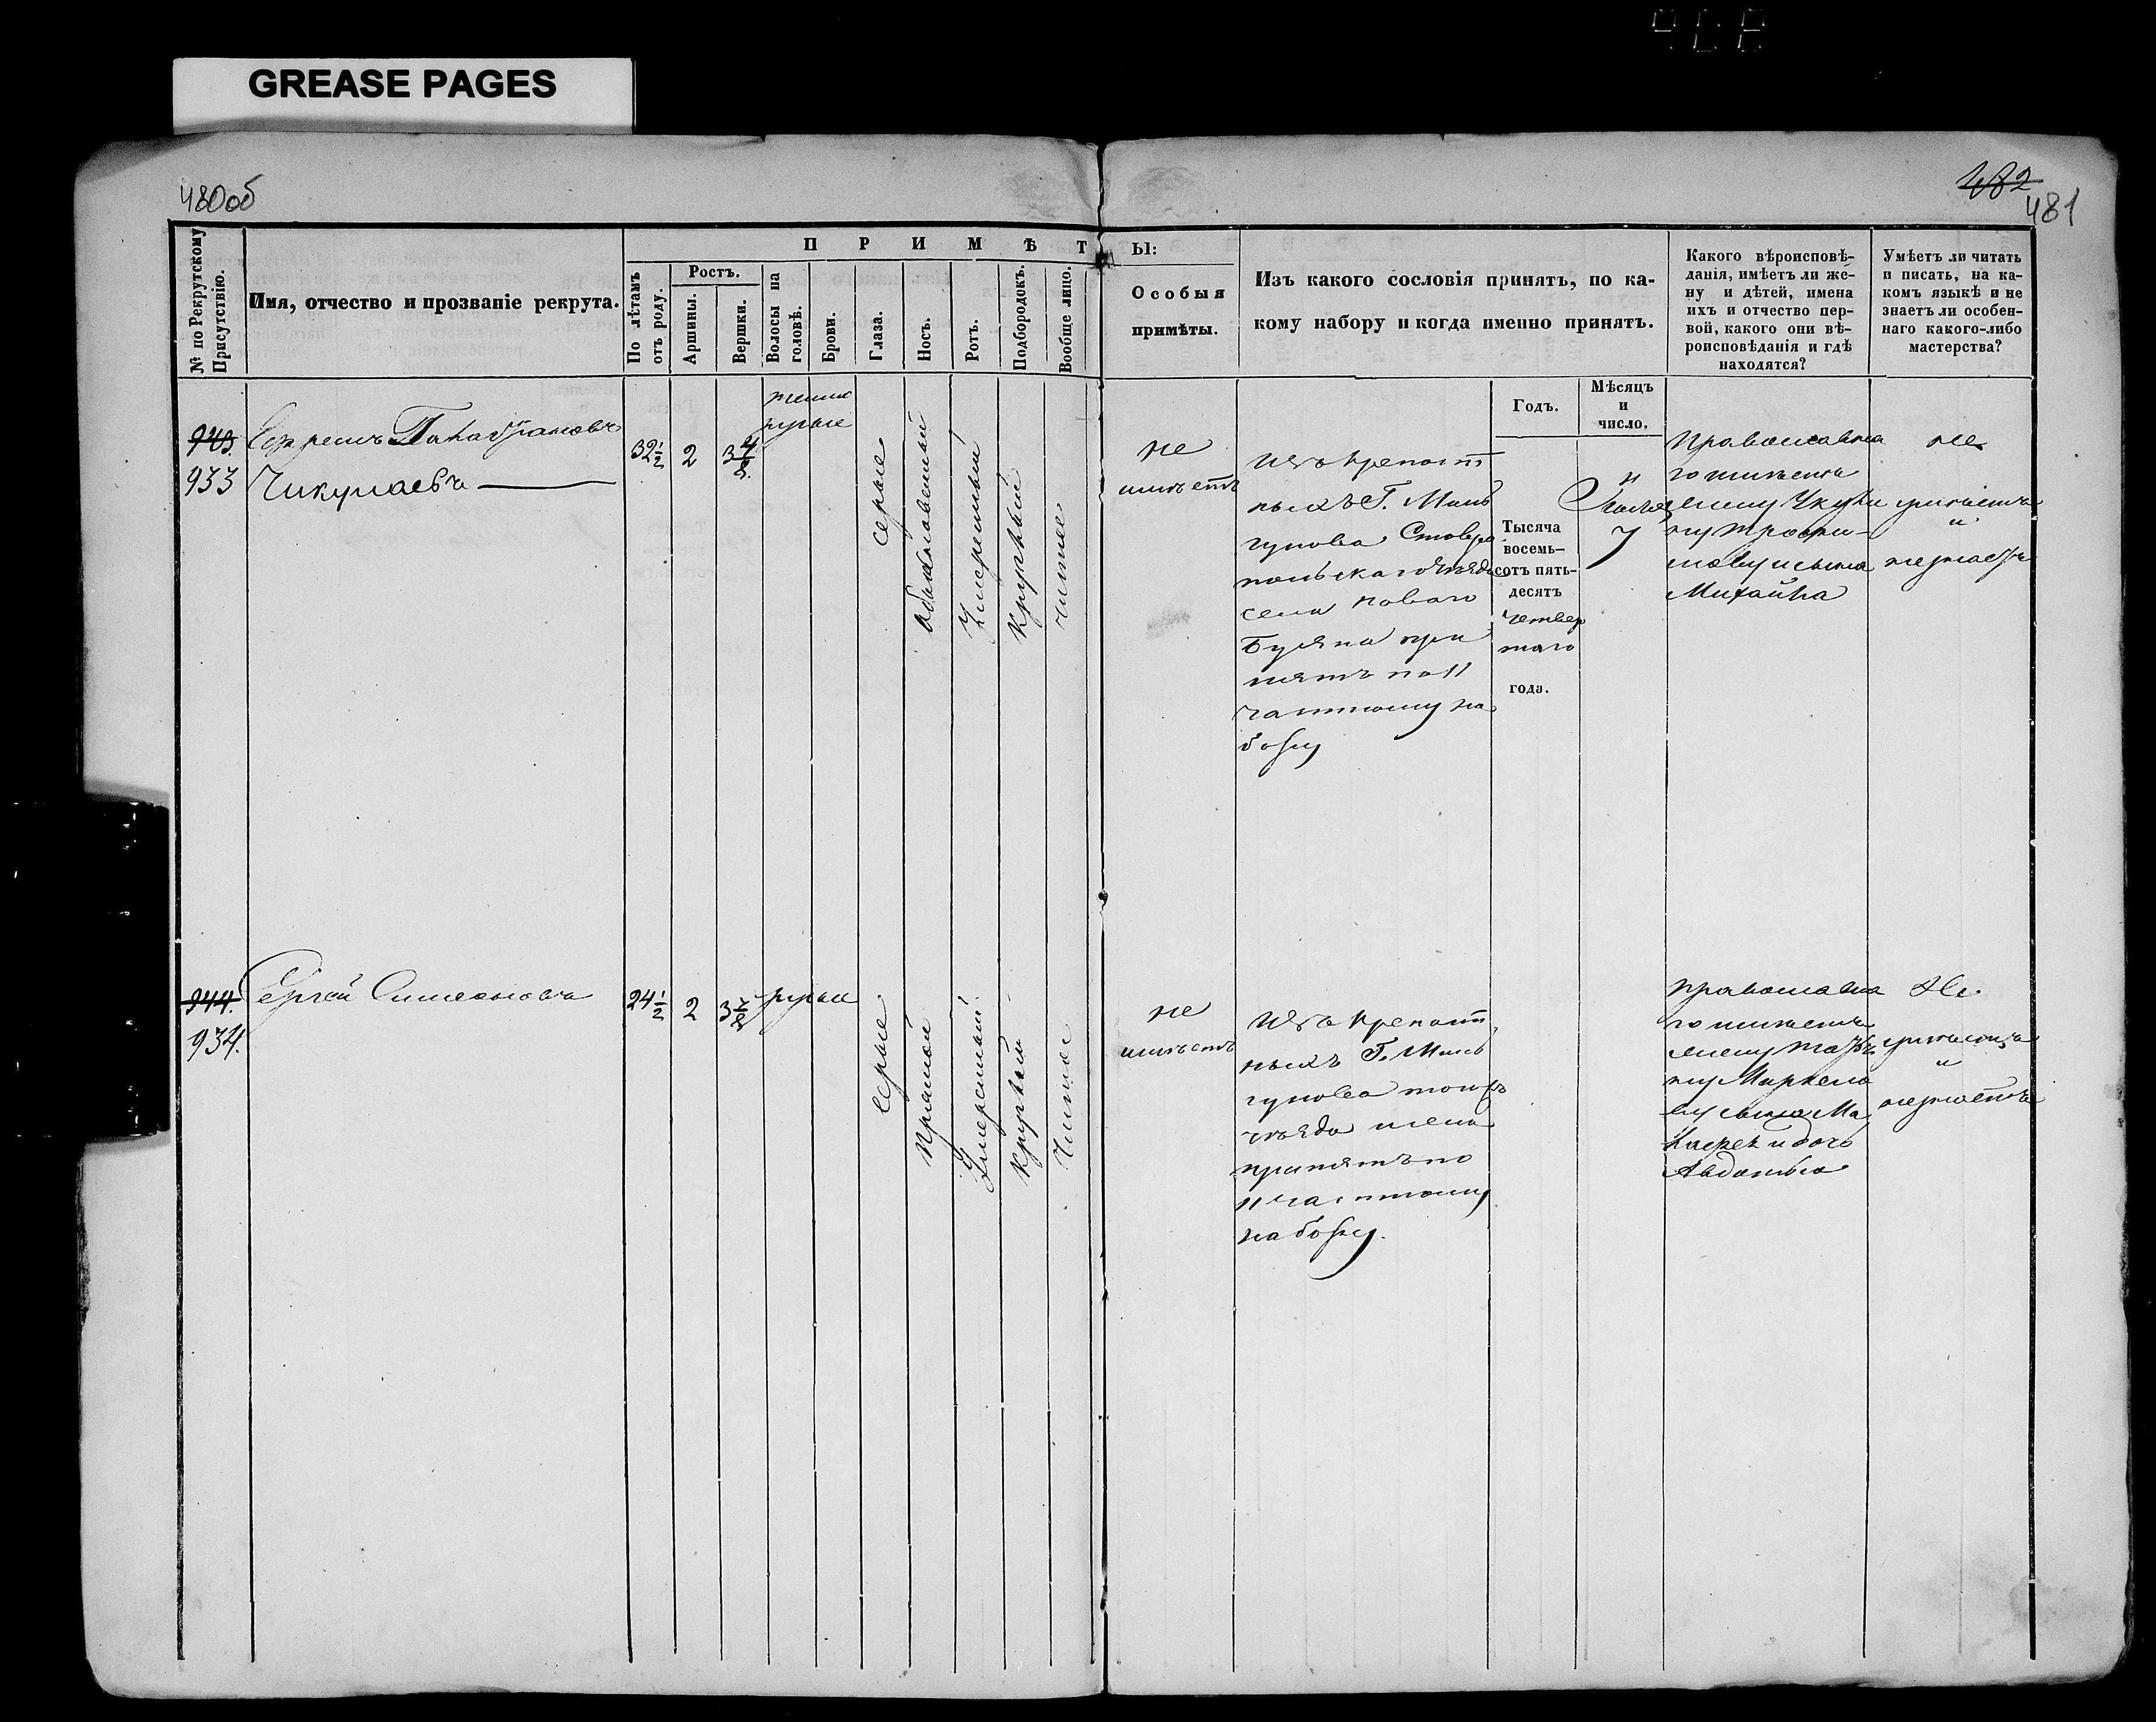 GREASE PAGES
480об
482
481
№ по Рекрутскому Присутствію.
Имя, отчество и прозваніе рекрута.
ПРИМѢТЫ:
По лѣтамъ отъ роду.
Ростъ.
Аршины.
Вершки.
Волосы на головѣ.
Брови.
Глаза.
Носъ.
Ротъ.
Подбородокъ.
Вообще лицо.
Особыя
примѣты.
Изъ какого сословія принятъ, по ка-
кому набору и когда именно принятъ.
Годъ.
Мѣсяцъ
и
число.
Какого вѣроисповѣ-
данія, имѣетъ ли же-
ну и дѣтей, имена
ихъ и отчество пер-
вой, какого они вѣ-
роисповѣданія и гдѣ
находятся?
Умѣетъ ли читать
и писать, на ка-
комъ языкѣ и не
знаетъ ли особен-
наго какого-либо
мастерства?
943.
933
Чикулаевъ
32 1/2
2
3 4/8.
русые
серые
обыкновенный
умеренный
круглый
чистое
не
имѣетъ
Изъ крепост
ныхъ Г.
Ставро
польскаго уѣзда
села Новаго
Буяна при
нятъ по 11
частному на
бору
Тысяча
восемь-
сотъ пять-
десятъ
четвер
таго
года.
7
Православна
го имѣетъ
жену
ну Трофи-
мову и сына
Михайла
не
умѣетъ
и
не знаетъ
944.
934.
Сергей Симеоновъ
24 1/2
2
3 7/8
русые
серые
прямой
умеренный
круглый
Чистое
не
имѣетъ
Изъ крепост
ныхъ Г.
уѣзда
принятъ по
11 частному
набору.
Православна
го имѣетъ
жену
ну Маркело
ву сына Ма
и дочь
Авдотью
Не
умѣетъ
и
не знаетъ